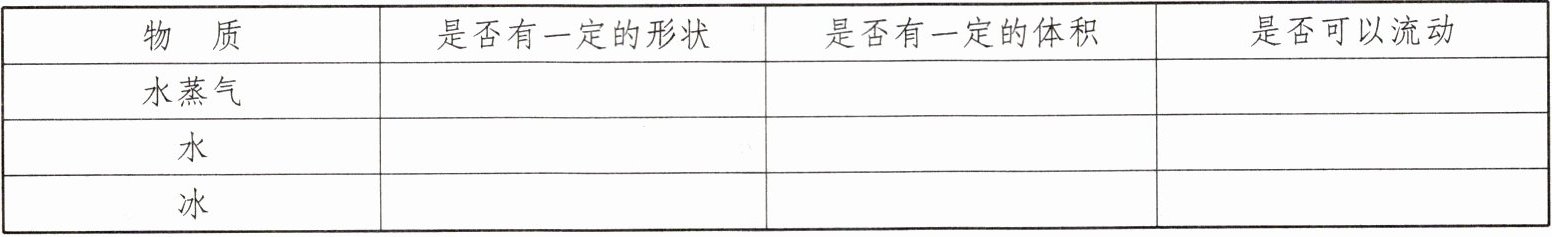 物 质 是否有一定的形状 是否有一定的体积 是否可以流动
水蒸气
水
冰